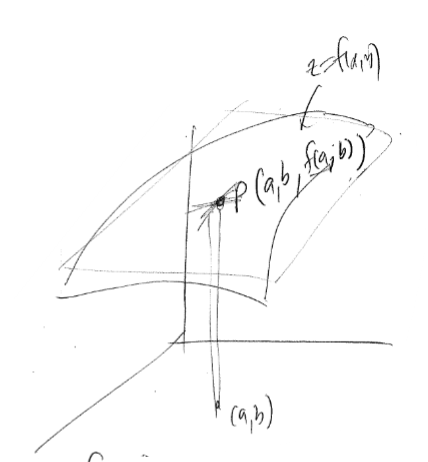 z=f(x,y)
P(a,b,f(a,b))
(a,b)